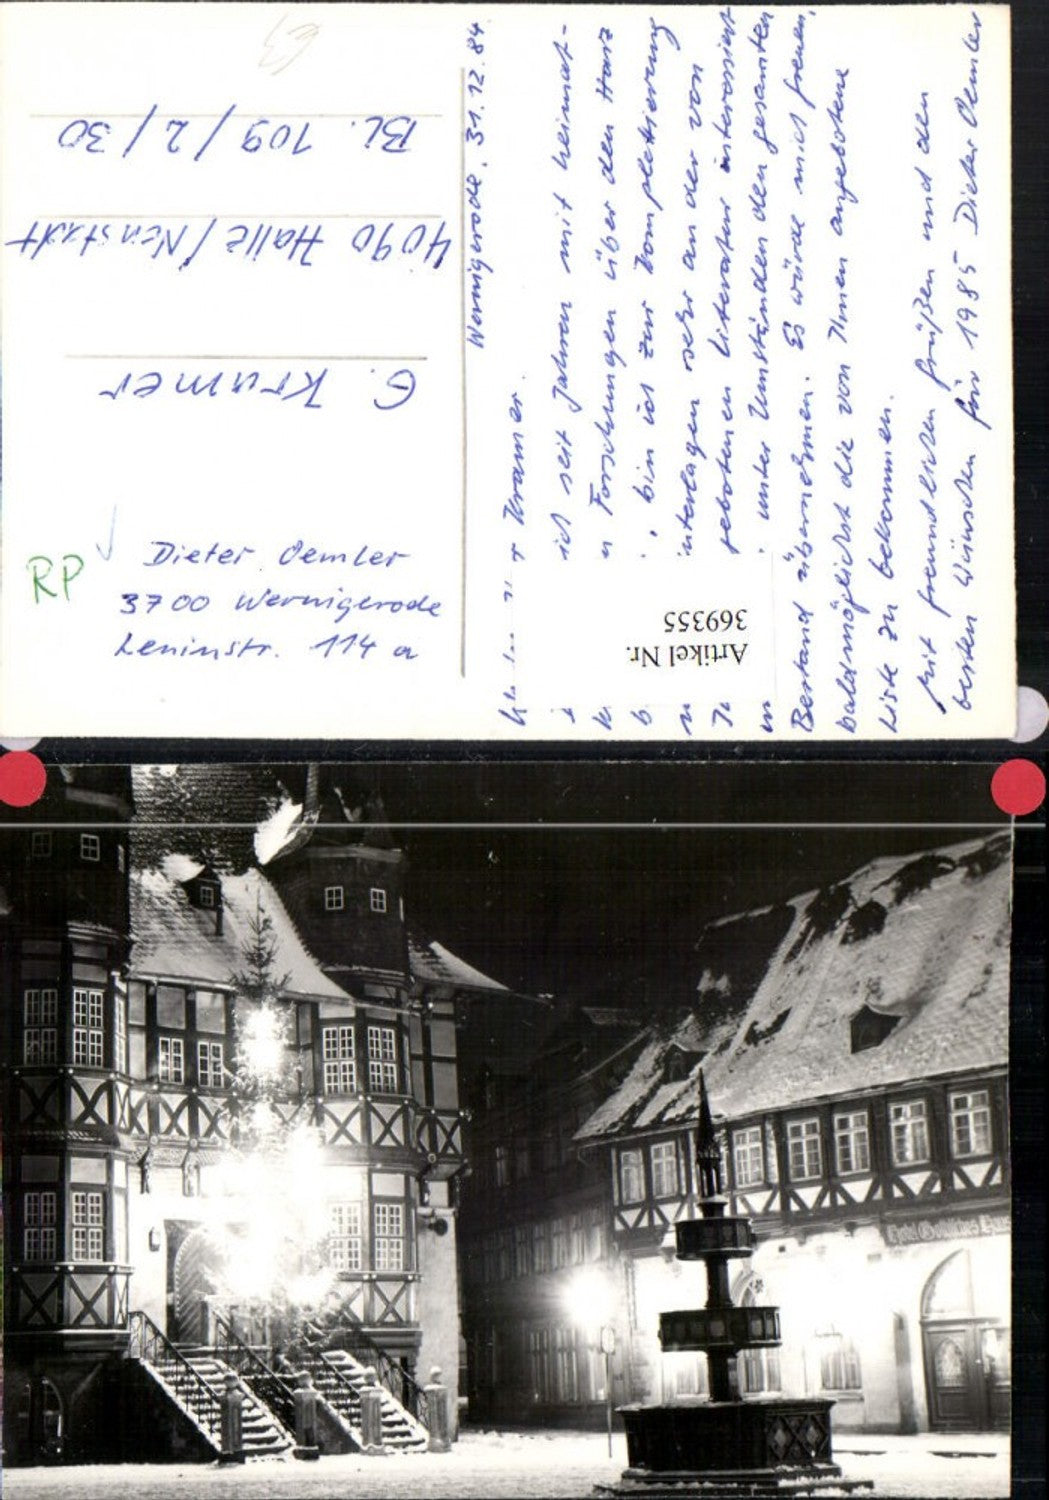 Wernigerode, 31.12.84
Kramer.
ich seit Jahren mit heimat-
Forschungen über den Harz
b , bin ich zur Komplettierung
interlagen sehr an der von
gebotenen Literatur interessiert
unter Umständen den gesamten
Bestand übernehmen. Es würde mich freuen,
baldmöglichst die von Ihnen angebotene
Liste zu bekommen.
Mit freundlichen Grüßen und den
besten Wünschen für 1985 Dieter Oemler
Artikel Nr.
369355
G. Kramer
4090 Halle/Neustadt
Bl. 109/2/30
RP
Dieter Oemler
3700 Wernigerode
Leninstr. 114 a
Hotel Gotisches Haus